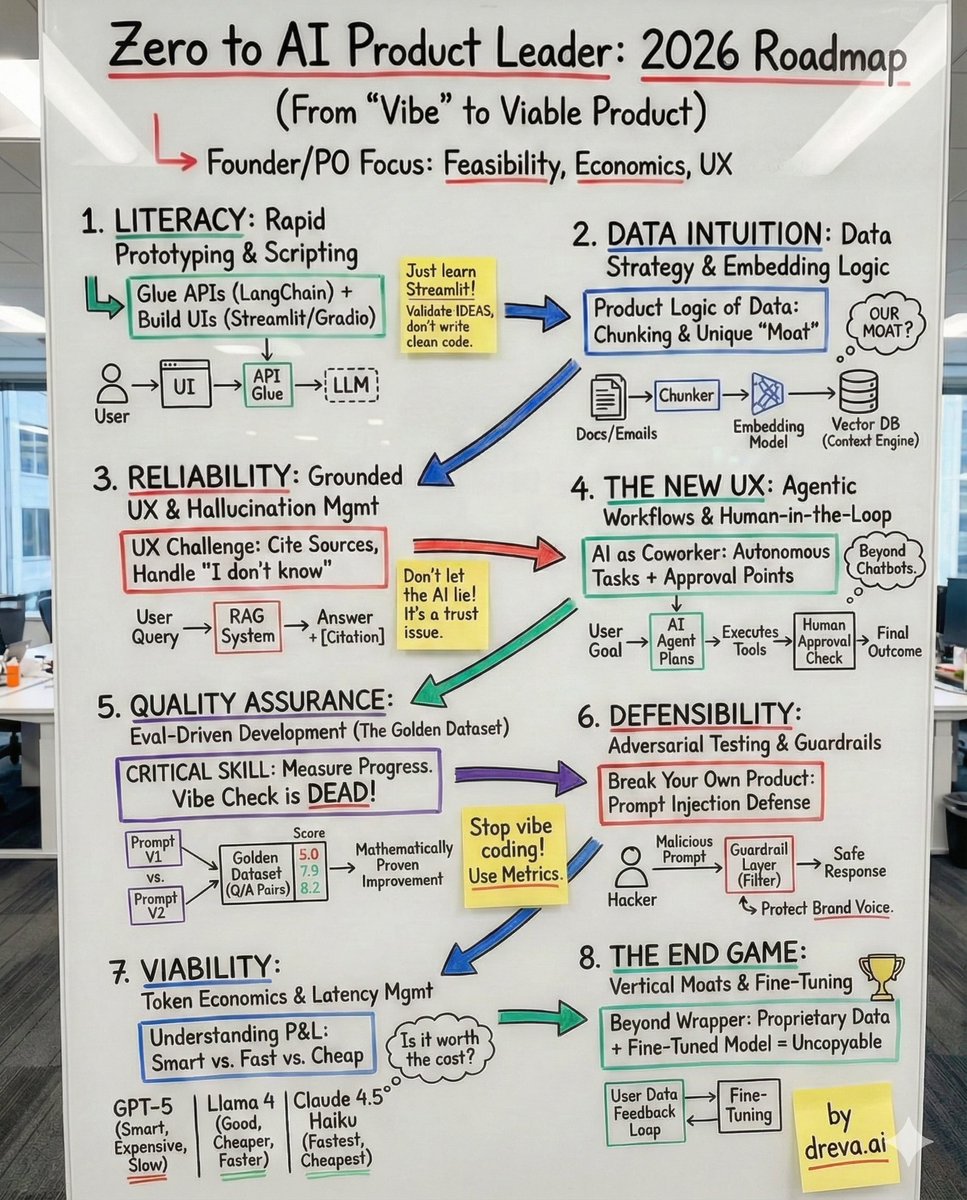 Zero to AI Product Leader: 2026 Roadmap
(From "Vibe" to Viable Product)
Founder/PO Focus: Feasibility, Economics, UX
1. LITERACY: Rapid
Prototyping & Scripting
Glue APIs (LangChain) +
Build UIs (Streamlit/Gradio)
User
UI
API
Glue
LLM
Just learn
Streamlit!
Validate IDEAS,
don't write
clean code.
2. DATA INTUITION: Data
Strategy & Embedding Logic
Product Logic of Data:
Chunking & Unique "Moat"
OUR
MOAT?
Docs/Emails
Chunker
Embedding
Model
Vector DB
(Context Engine)
3. RELIABILITY: Grounded
UX & Hallucination Mgmt
UX Challenge: Cite Sources,
Handle "I don't know"
User
Query
RAG
System
Answer
+ [Citation]
Don't let
the AI lie!
It's a trust
issue.
4. THE NEW UX: Agentic
Workflows & Human-in-the-Loop
AI as Coworker: Autonomous
Tasks + Approval Points
Beyond
Chatbots.
User
Goal
AI
Agent
Plans
Executes
Tools
Human
Approval
Check
Final
Outcome
5. QUALITY ASSURANCE:
Eval-Driven Development (The Golden Dataset)
CRITICAL SKILL: Measure Progress.
Vibe Check is DEAD!
Prompt
V1
vs.
Prompt
V2
Golden
Dataset
(Q/A Pairs)
Score
5.0
7.9
8.2
Mathematically
Proven
Improvement
Stop vibe
coding!
Use Metrics.
6. DEFENSIBILITY:
Adversarial Testing & Guardrails
Break Your Own Product:
Prompt Injection Defense
Hacker
Malicious
Prompt
Guardrail
Layer
(Filter)
Safe
Response
Protect Brand Voice.
7. VIABILITY:
Token Economics & Latency Mgmt
Understanding P&L:
Smart vs. Fast vs. Cheap
Is it worth
the cost?
GPT-5
(Smart,
Expensive,
Slow)
Llama 4
(Good,
Cheaper,
Faster)
Claude 4.5
Haiku
(Fastest,
Cheapest)
8. THE END GAME:
Vertical Moats & Fine-Tuning
Beyond Wrapper: Proprietary Data
+ Fine-Tuned Model = Uncopyable
User Data
Feedback
Loap
Fine-
Tuning
by
dreva.ai